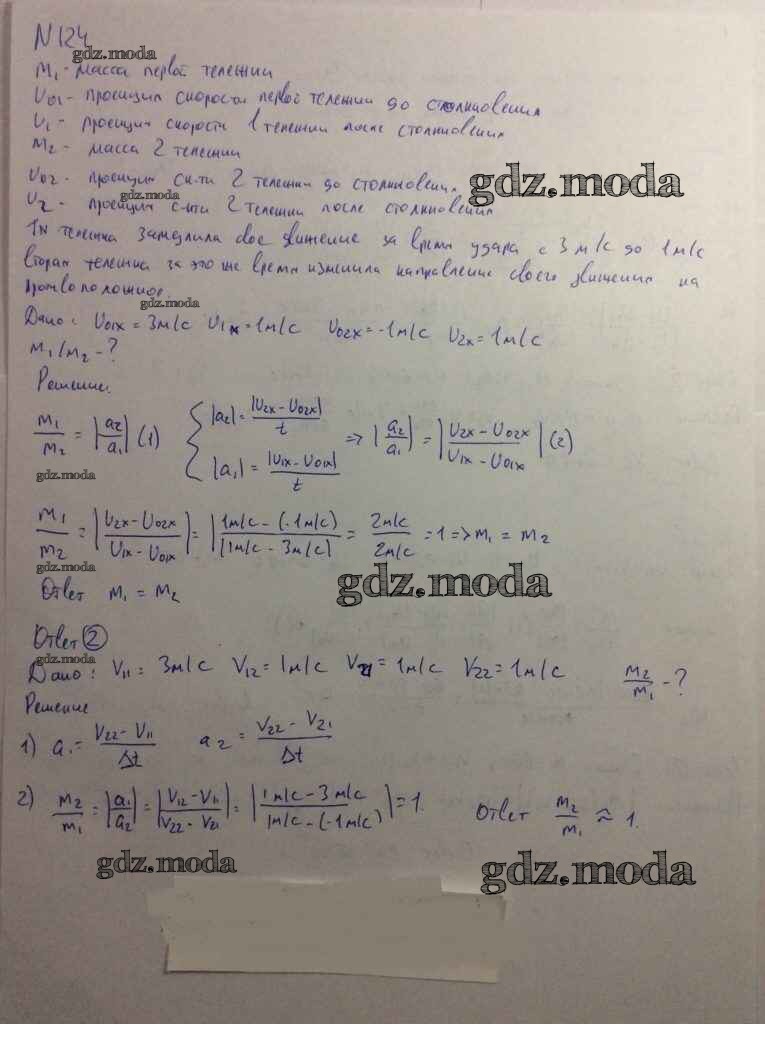 N 124
gdz.moda
m₁ - масса первой тележки
U₀₁ - проекция скорости первой тележки до столкновения
U₁ - проекция скорости 1 тележки после столкновения
m₂ - масса 2 тележки
U₀₂ - проекция ск-ти 2 тележки до столкновения gdz.moda
gdz.moda
U₂ - проекция с-ти 2 тележки после столкновения
1я тележка замедлила свое движение за время удара с 3 м/с до 1 м/с
вторая тележка за это же время изменила направление своего движения на
противоположное.
gdz.moda
Дано: U₀₁ₓ = 3м/с U₁ₓ = 1м/с U₀₂ₓ = -1м/с U₂ₓ = 1м/с
m₁/m₂ - ?
Решение.
m₁/m₂ = |a₂/a₁| (1) { |a₂| = |U₂ₓ - U₀₂ₓ|/t |a₁| = |U₁ₓ - U₀₁ₓ|/t => |a₂/a₁| = |U₂ₓ - U₀₂ₓ / U₁ₓ - U₀₁ₓ| (2)
gdz.moda
m₁/m₂ = |U₂ₓ - U₀₂ₓ / U₁ₓ - U₀₁ₓ| = |1м/с - (-1м/с) / |1м/с - 3м/с| = 2м/с / 2м/с = 1 => m₁ = m₂
gdz.moda
Ответ m₁ = m₂ gdz.moda
Ответ ②
gdz.moda
Дано: V₁₁ = 3м/с V₁₂ = 1м/с V₂₁ = 1м/с V₂₂ = 1м/с m₂/m₁ - ?
Решение
1) a₁ = V₂₂ - V₁₁ / Δt a₂ = V₂₂ - V₂₁ / Δt
2) m₂/m₁ = |a₁/a₂| = |V₁₂ - V₁₁ / V₂₂ - V₂₁| = |1м/с - 3м/с / 1м/с - (-1м/с)| = 1. Ответ m₂/m₁ ≈ 1.
gdz.moda gdz.moda